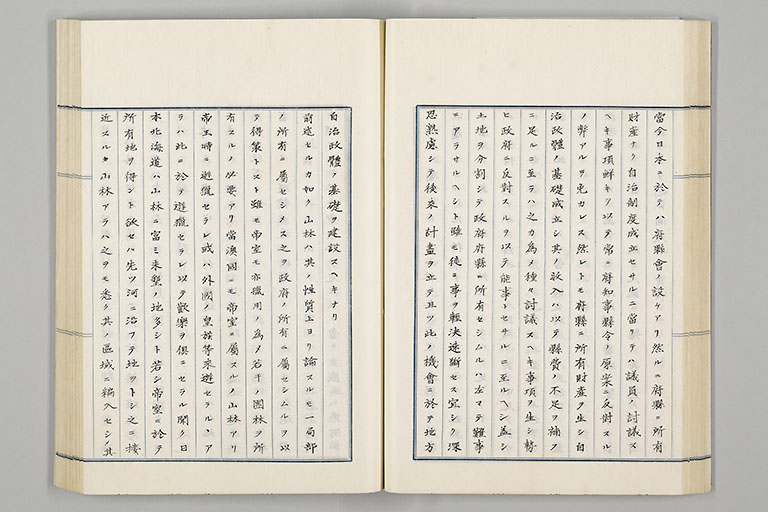 當今日本ニ於テハ府縣會ノ設ケアリ然ルニ府縣ニ所有
財産ナク自治制度成立セサルニ當リテハ議員ノ討議ス
ヘキ事項鮮キヲ以テ常ニ府知事縣令ノ原案ニ反對スル
ノ弊アルヲ免カレス然レトモ府縣ニ所有財産ヲ生シ自
治政體ノ基礎成立シ其ノ收入ハ以テ縣費ノ不足ヲ補フ
ニ足ルニ至ラハ之カ為メ種々討議スヘキ事項ヲ生シ勢
ヒ政府ニ反對スルヲ以テ能事トセサルニ至ルヘシ蓋シ
土地ヲ分割シテ政府府縣ニ所有セシムルハ左マテ難事
ニアラサルヘシト雖モ徒ニ事ヲ輕決速斷セス宜シク深
思熟慮シテ後來ノ計畫ヲ立テ且ツ此ノ機會ニ於テ地方
自治政體ノ基礎ヲ建設スヘキナリ
前述セルカ如ク山林ハ其ノ性質上ヨリ論スルモ一局部
ノ所有ニ屬セシメス之ヲ政府ノ所有ニ屬セシムルヲ以
テ得策トスト雖モ帝室モ亦獵用ノ為メ若干ノ園林ヲ所
有スルノ必要アリ當澳國ニモ帝室ニ屬スルノ山林アリ
帝王時ニ遊獵セラレ或ハ外國ノ皇族等來遊セラルヽア
ラハ此ニ於テ遊獵セラレ以テ歡樂ヲ俱ニセラル聞ク日
本北海道ハ山林ニ富ミ未墾ノ地多シト若シ帝室ニ於テ
所有地ヲ得ント欲セハ先ツ河ニ沿フテ地ヲトシ之ニ接
近スルタ山林アラハ之ヲモ悉ク其ノ區域ニ編入セシメ其